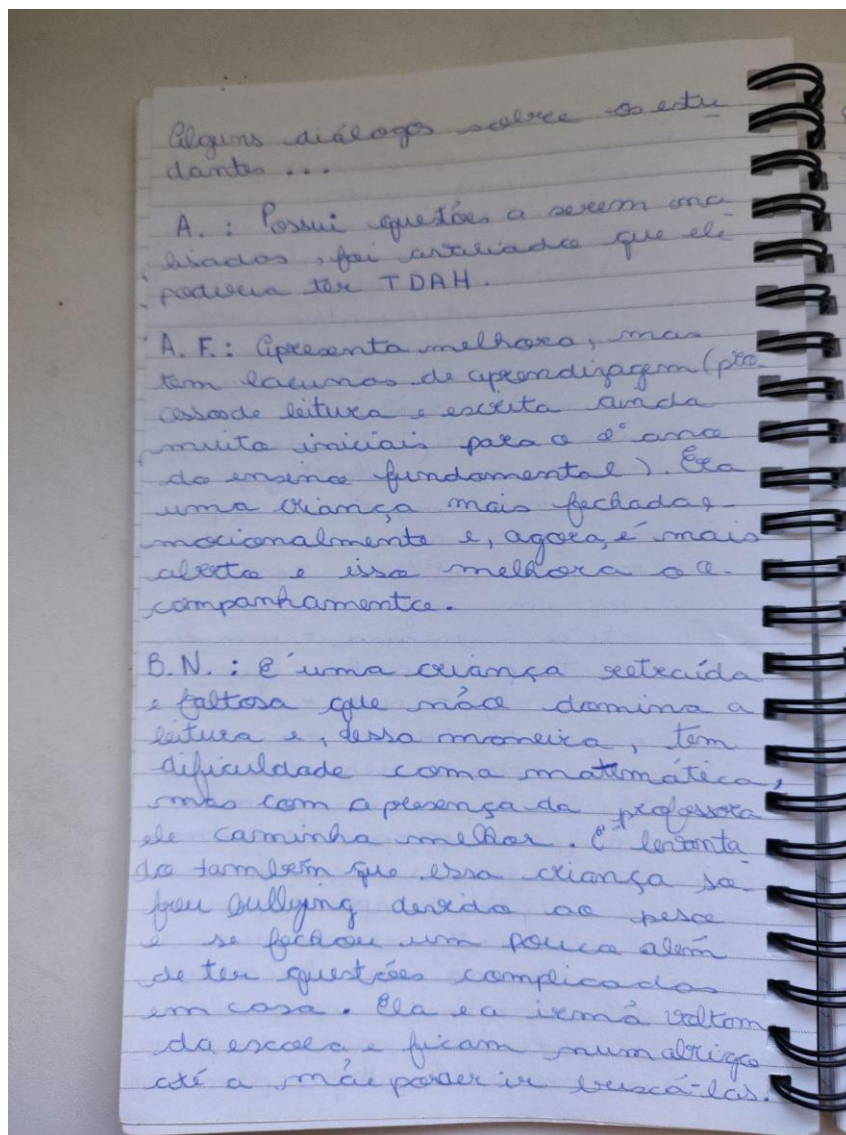 Alguns diálogos sobre os estu
dantes ...
A. : Possui questões a serem ana
lisadas, foi avaliado que ele
poderia ter TDAH.
A. F. : Apresenta melhora, mas
tem lacunas de aprendizagem (pro
cessos de leitura e escrita ainda
muito iniciais para o 2º ano
do ensino fundamental). Era
uma criança mais fechada e-
mocionalmente e, agora, é mais
aberta e isso melhora o a-
companhamento.
B.N. : É uma criança retraída
e faltosa que não domina a
leitura e, dessa maneira, tem
dificuldade com a matemática,
mas com a presença da professora
ele caminha melhor. É levanta
do também que essa criança so-
freu bullying devido ao peso
e se fechou um pouco além
de ter questões complicadas
em casa. Ela e a irmã voltam
da escola e ficam num abrigo
até a mãe poder ir buscá-las.